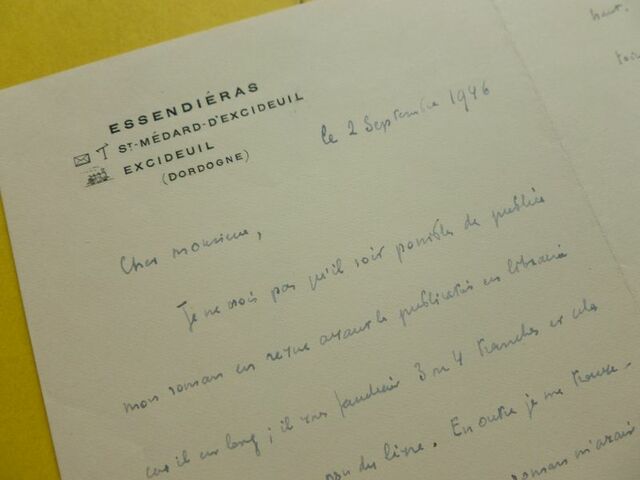 ESSENDIÉRAS
ST-MÉDARD-D'EXCIDEUIL
EXCIDEUIL
(DORDOGNE)
le 2 Septembre 1946
haut.
Cher monsieur,
Je ne crois pas qu'il soit possible de publier
mon roman en revue avant la publication en librairie
car il est long ; il vous faudrait 3 ou 4 tranches et cela
du livre. En outre je me trouve
roman m'avait